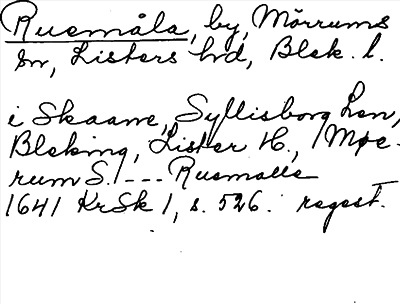 Rusmåla, by, Mörrums
sn, Listers hd, Blek. l.
i Skaane, Syllisborg Len,
Bleking, Lister H., Moe-
rum S. --- Rusmalle
1641 KrSk 1, s. 526. regest.